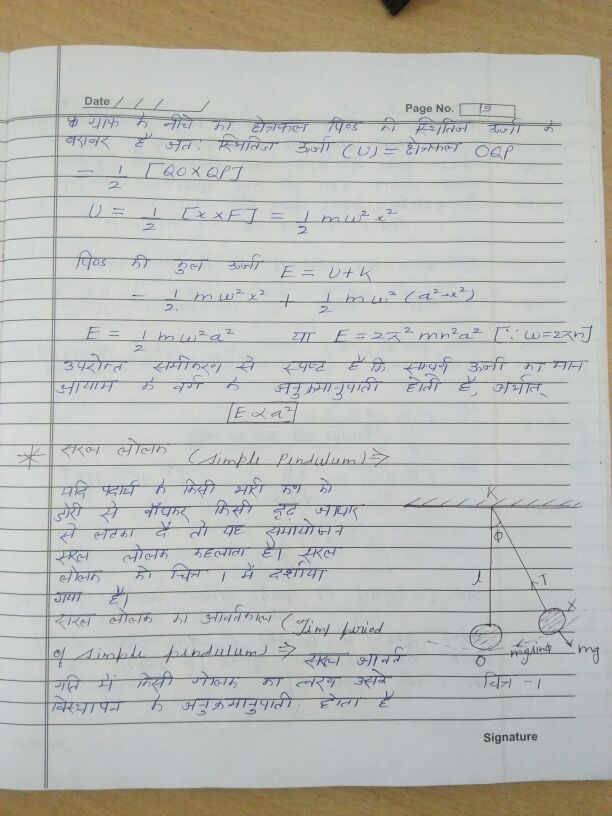 Date / / /
Page No. 19
ग्राफ के नीचे का क्षेत्रफल पिण्ड की स्थितिज ऊर्जा के
बराबर है अतः स्थितिज ऊर्जा (U) = क्षेत्रफल OQP
= 1/2 [QO×QP]
U = 1/2 [x×F] = 1/2 mω²x²
पिण्ड की कुल ऊर्जा E = U+K
= 1/2 mω²x² + 1/2 mω² (a²-x²)
E = 1/2 mω²a² या E = 2π²mn²a² [∵ ω=2πn]
उपरोक्त समीकरण से स्पष्ट है कि सम्पूर्ण ऊर्जा का मान
आयाम के वर्ग के अनुक्रमानुपाती होती है, अर्थात्
E∝a²
* सरल लोलक (simple pendulum) ⇒
यदि पदार्थ के किसी भारी कण को
डोरी से बाँधकर किसी दृढ़ आधार
से लटका दें तो यह समायोजन
सरल लोलक कहलाता है। सरल
लोलक को चित्र 1 में दर्शाया
गया है।
सरल लोलक का आवर्तकाल (Time period
of simple pendulum) ⇒ सरल आवर्त
गति में किसी गोलक का त्वरण उसके
विस्थापन के अनुक्रमानुपाती होता है
K
ϕ
l
T
X
O
mg sinϕ
mg
चित्र -1
Signature